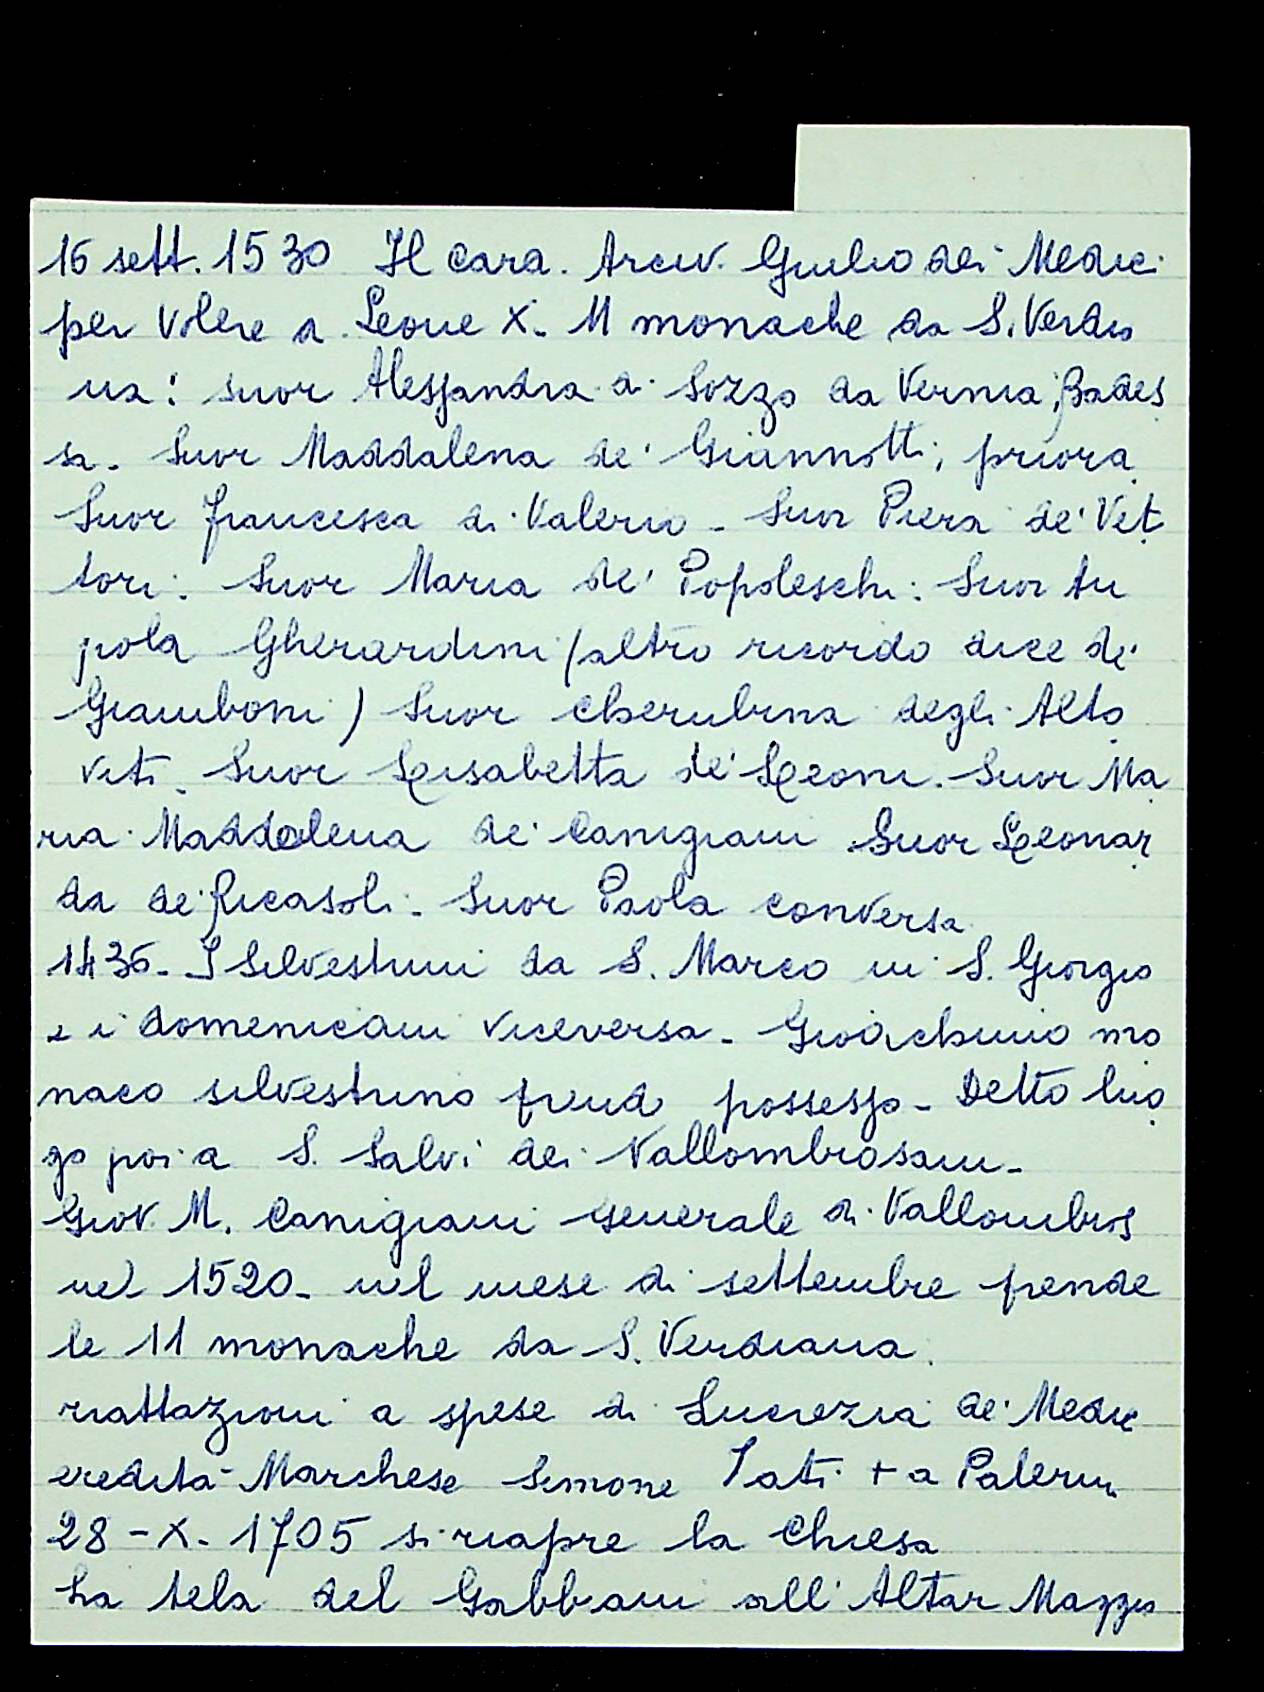 16 sett. 1530 Il Card. Arciv. Giulio dei Medici
per volere di Leone X. 11 monache da S. Verdia
na: suor Alessandra di Sozzo da Vernia, Bades
sa. Suor Maddalena de' Giannotti, priora
Suor Francesca di Valerio - Suor Piera de' Vet
tori. Suor Maria de' Popoleschi: Suor
Gherardini (altro ricordo dice de'
Giamboni) Suor Cherubina degli Alto
viti. Suor Lisabetta de' Leoni. Suor Ma
ria Maddalena de' Canigiani Suor Leonar
da de' Ricasoli. Suor Paola conversa
1436. I Silvestrini da S. Marco in S. Giorgio
e i domenicani viceversa. Gioachino mo
naco silvestrino prende possesso. Detto luo
go poi a S. Salvi dei Vallombrosani.
Giov. M. Canigiani generale di Vallombros
nel 1520. nel mese di settembre prende
le 11 monache da S. Verdiana.
riattazioni a spese di Lucrezia de' Medic
eredità Marchese Simone + a Palerm
28-X-1705 si riapre la Chiesa
La tela del Gabbiani all'Altar Maggio